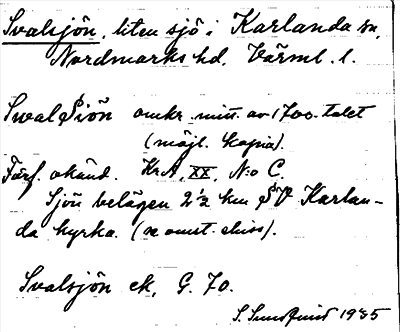 Svalsjön, liten sjö i Karlanda sn,
Nordmarks hd. Värml. l.
Swal Siön omkr. mitt. av 1700-talet
(möjl. kopia).
Förf. okänd. Kr.A. XX, N:o C.
Sjön belägen 2 ½ km SV Karlan-
da kyrka. (se omst. skiss).
Svalsjön ek. G. 70.
S. Sundquist 1935